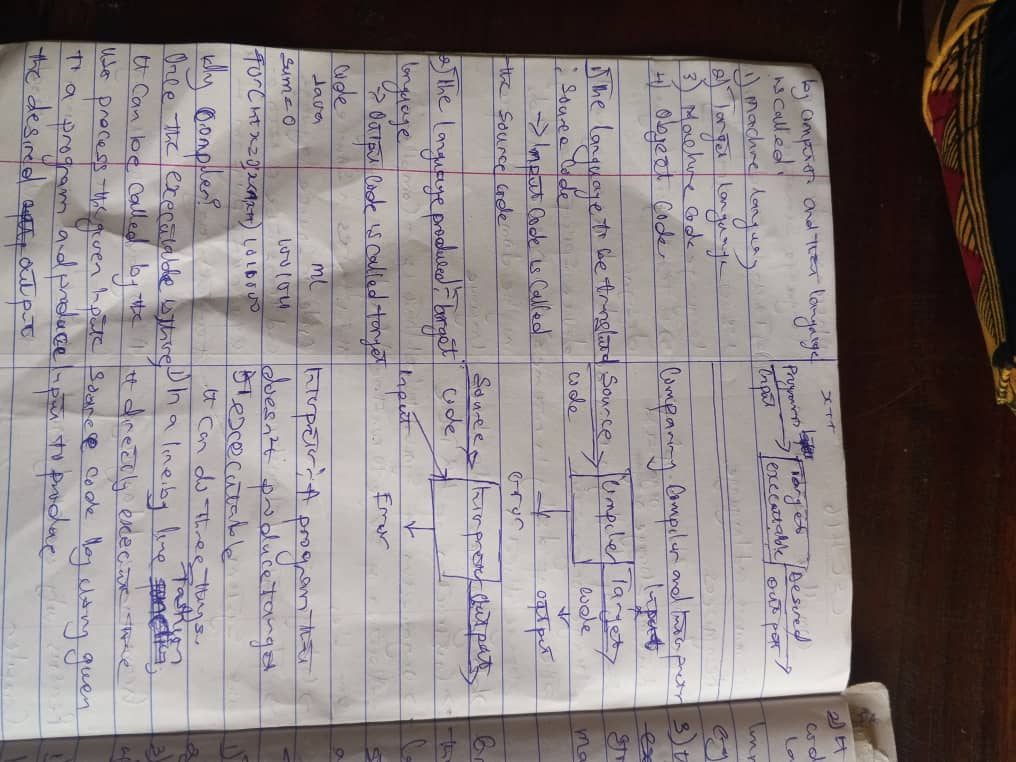 by computer and their language
is called:
1) Machine language
2) Target language
3) Machine Code
4) Object Code
1) The language to be translated
: Source Code
→ Input Code is Called
the Source code
2) The language produced: Target
language
→ Output Code is called target
code
Java ML
Sum=0 1001011
For(int x=0;x<n;x++) 1010000
Why Compiler?
Once the executable is there
it Can be called by the
user process the given input
to a program and produce
the desired output
x++
Program Target Desired
Input executable output
Comparing Compiler and Interpreter
Input
Source Compiler Target
code code
output
error
Source Interpreter Output
code
Input
Error
Interpreter: A program that
doesn't produce target
executable
It Can do three things
1) In a line by line Fashion
it directly execute the
Source code by using given
Input to produce
2) It
cod
3) t
ma